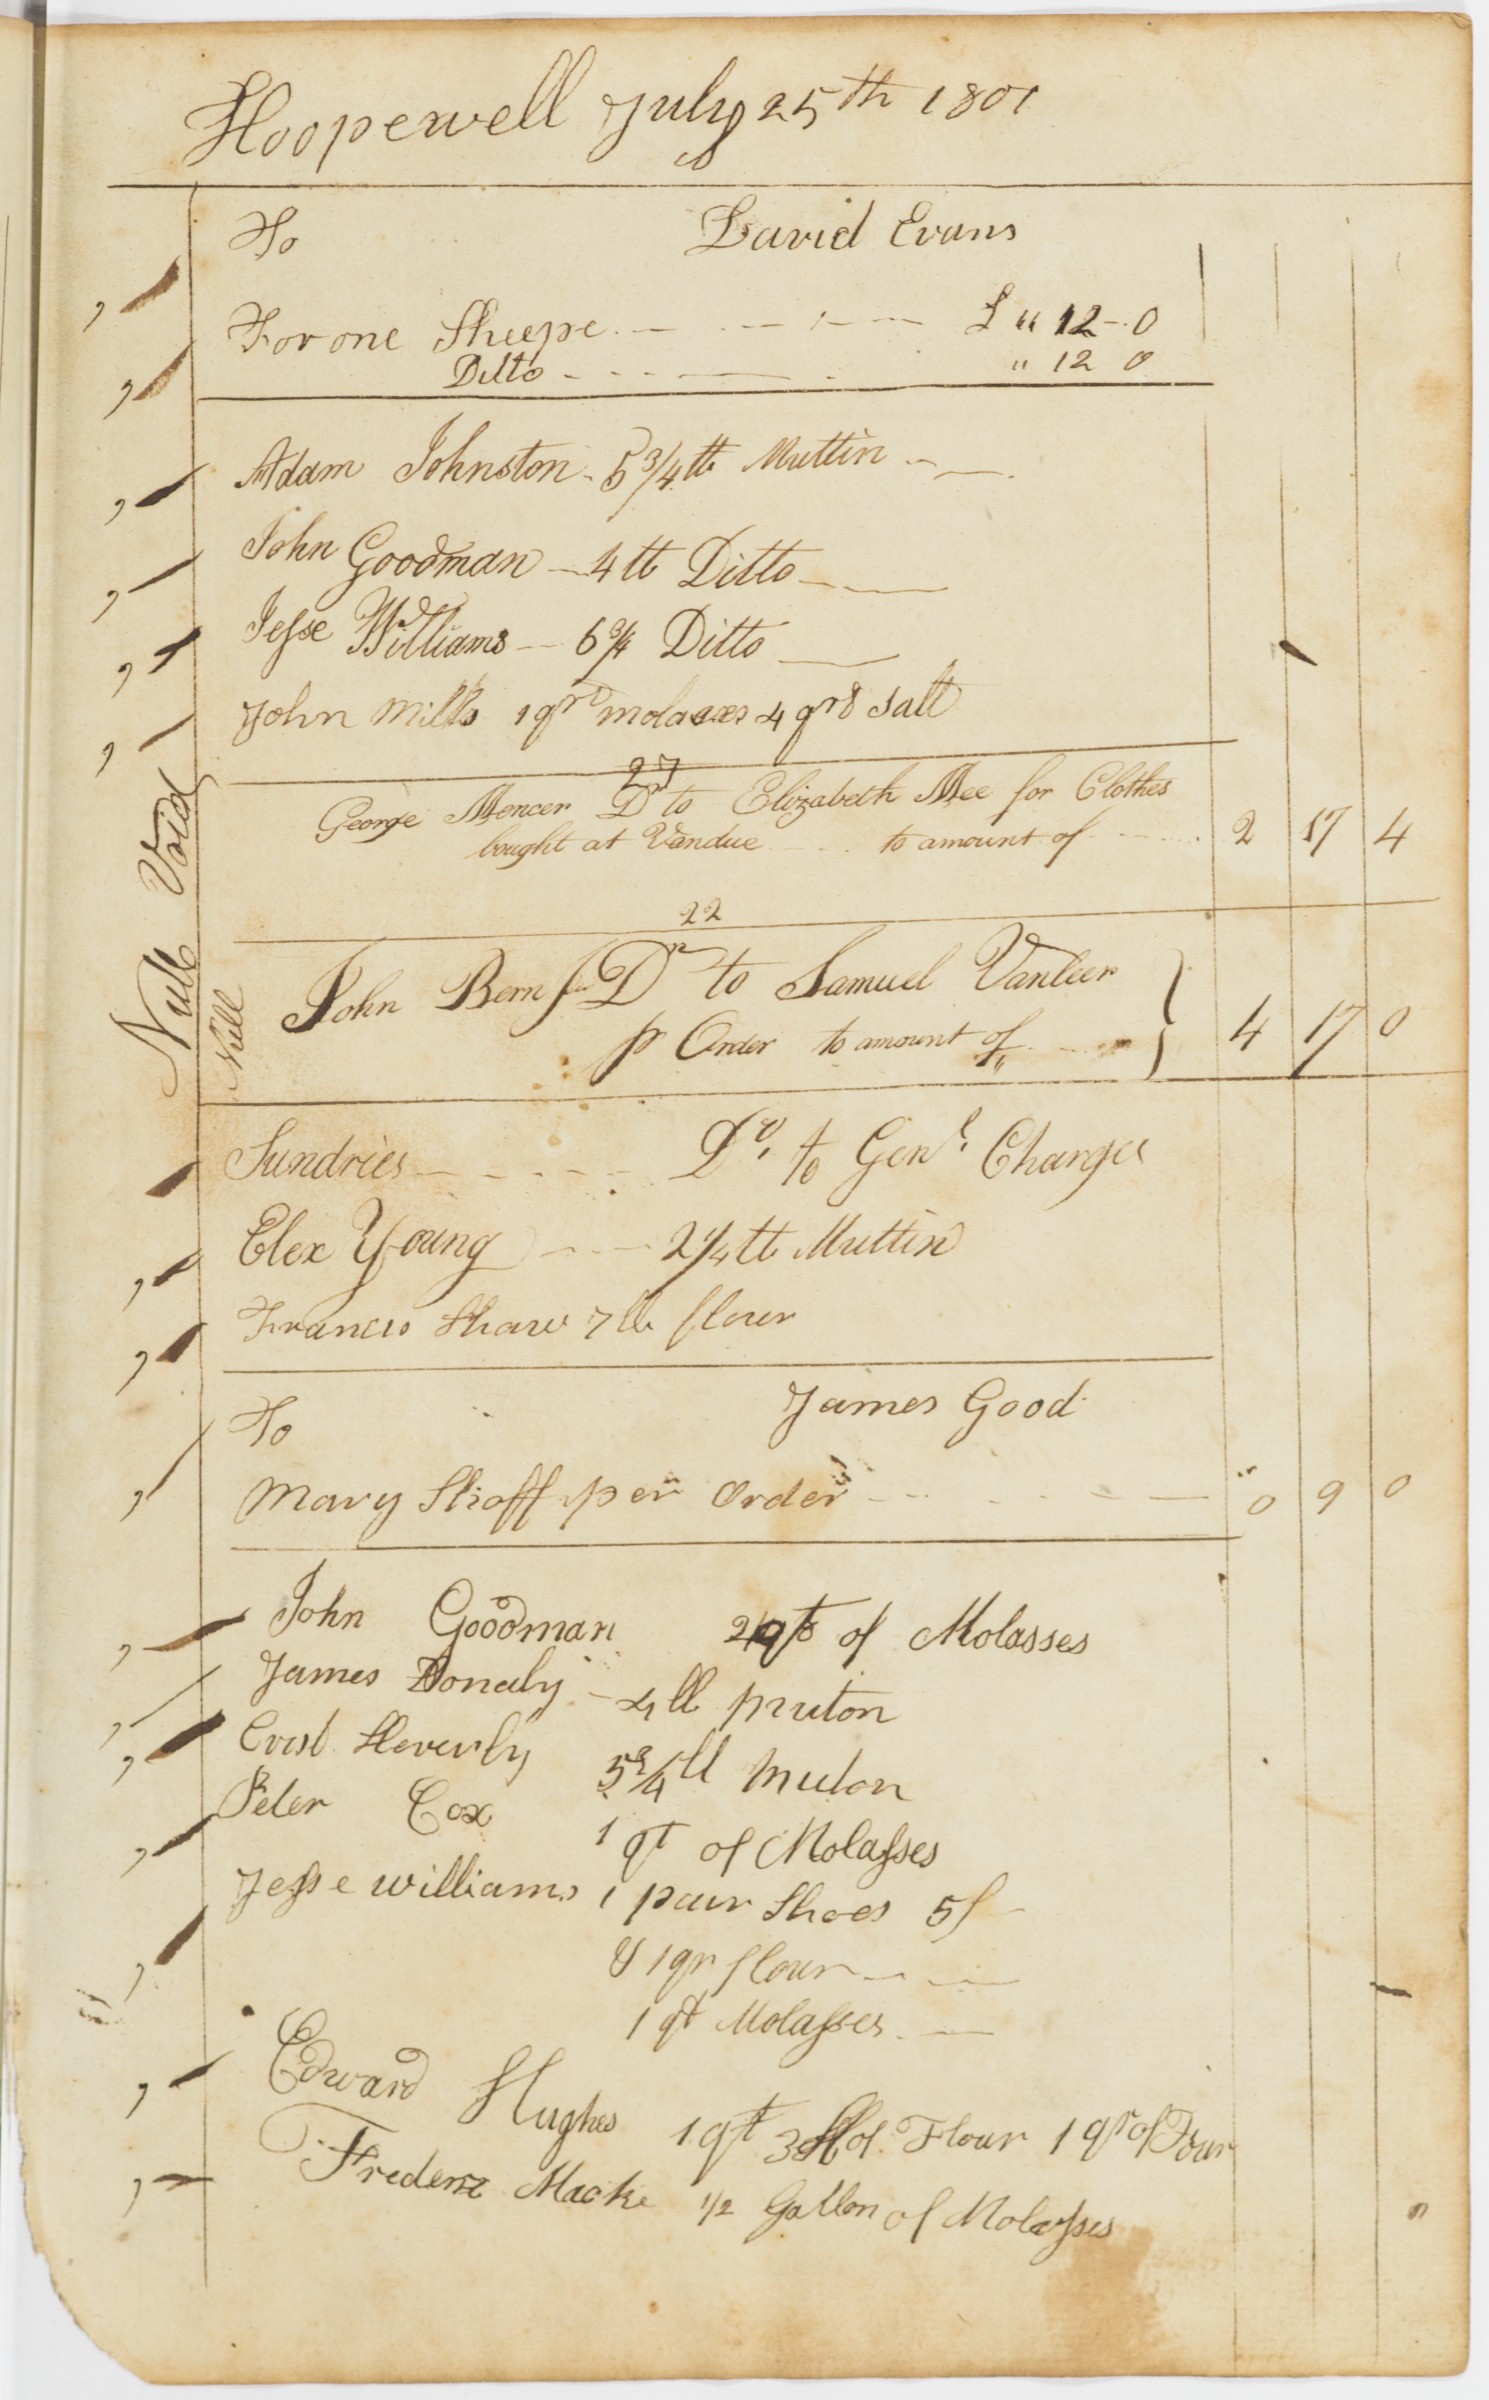 Hoopewell July 25th 1801
To David Evans
For one Sheepe £ " 12 - 0
Ditto " 12 0
Adam Johnston - 5 3/4 lb Muttin
John Goodman - 4 lb Ditto
Jesse Williams - 6 3/4 Ditto
John Mills 1 qrt molasses 4 qrts Salt
27
George Mencer Dr to Elizabeth Mee for Clothes
bought at Vandue to amount of 2 17 4
Null Void
22
John Bern Dr to Samuel Vanleer
pr Order to amount of 4 17 0
Null
Sundries Dr. to Genl. Charges
Elex Young 2 1/4 lb Muttin
Francis Shaw 7 lb flour
To James Good
Mary Shoff per Order 0 9 0
John Goodman 2 qts of Molasses
James Donaly - 4 lb muton
Crist Heverly 5 3/4 lb Muton
Peter Cox 1 qt of Molasses
Jesse williams 1 pair Shoes 5/
& 1 qr flour
1 qt Molasses
Edward Hughes 1 qt of Flour 1 qr of Flour
Frederic Macke 1/2 Gallon of Molasses